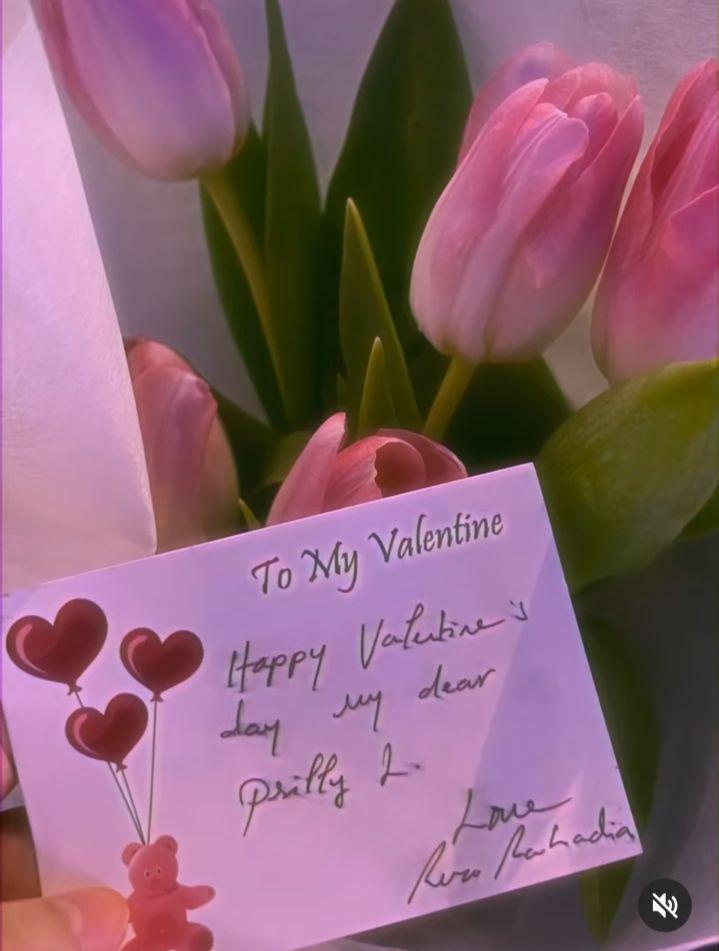 To My Valentine
Happy Valentine's
day my dear
Prilly L.
Love
Reza Rahadian